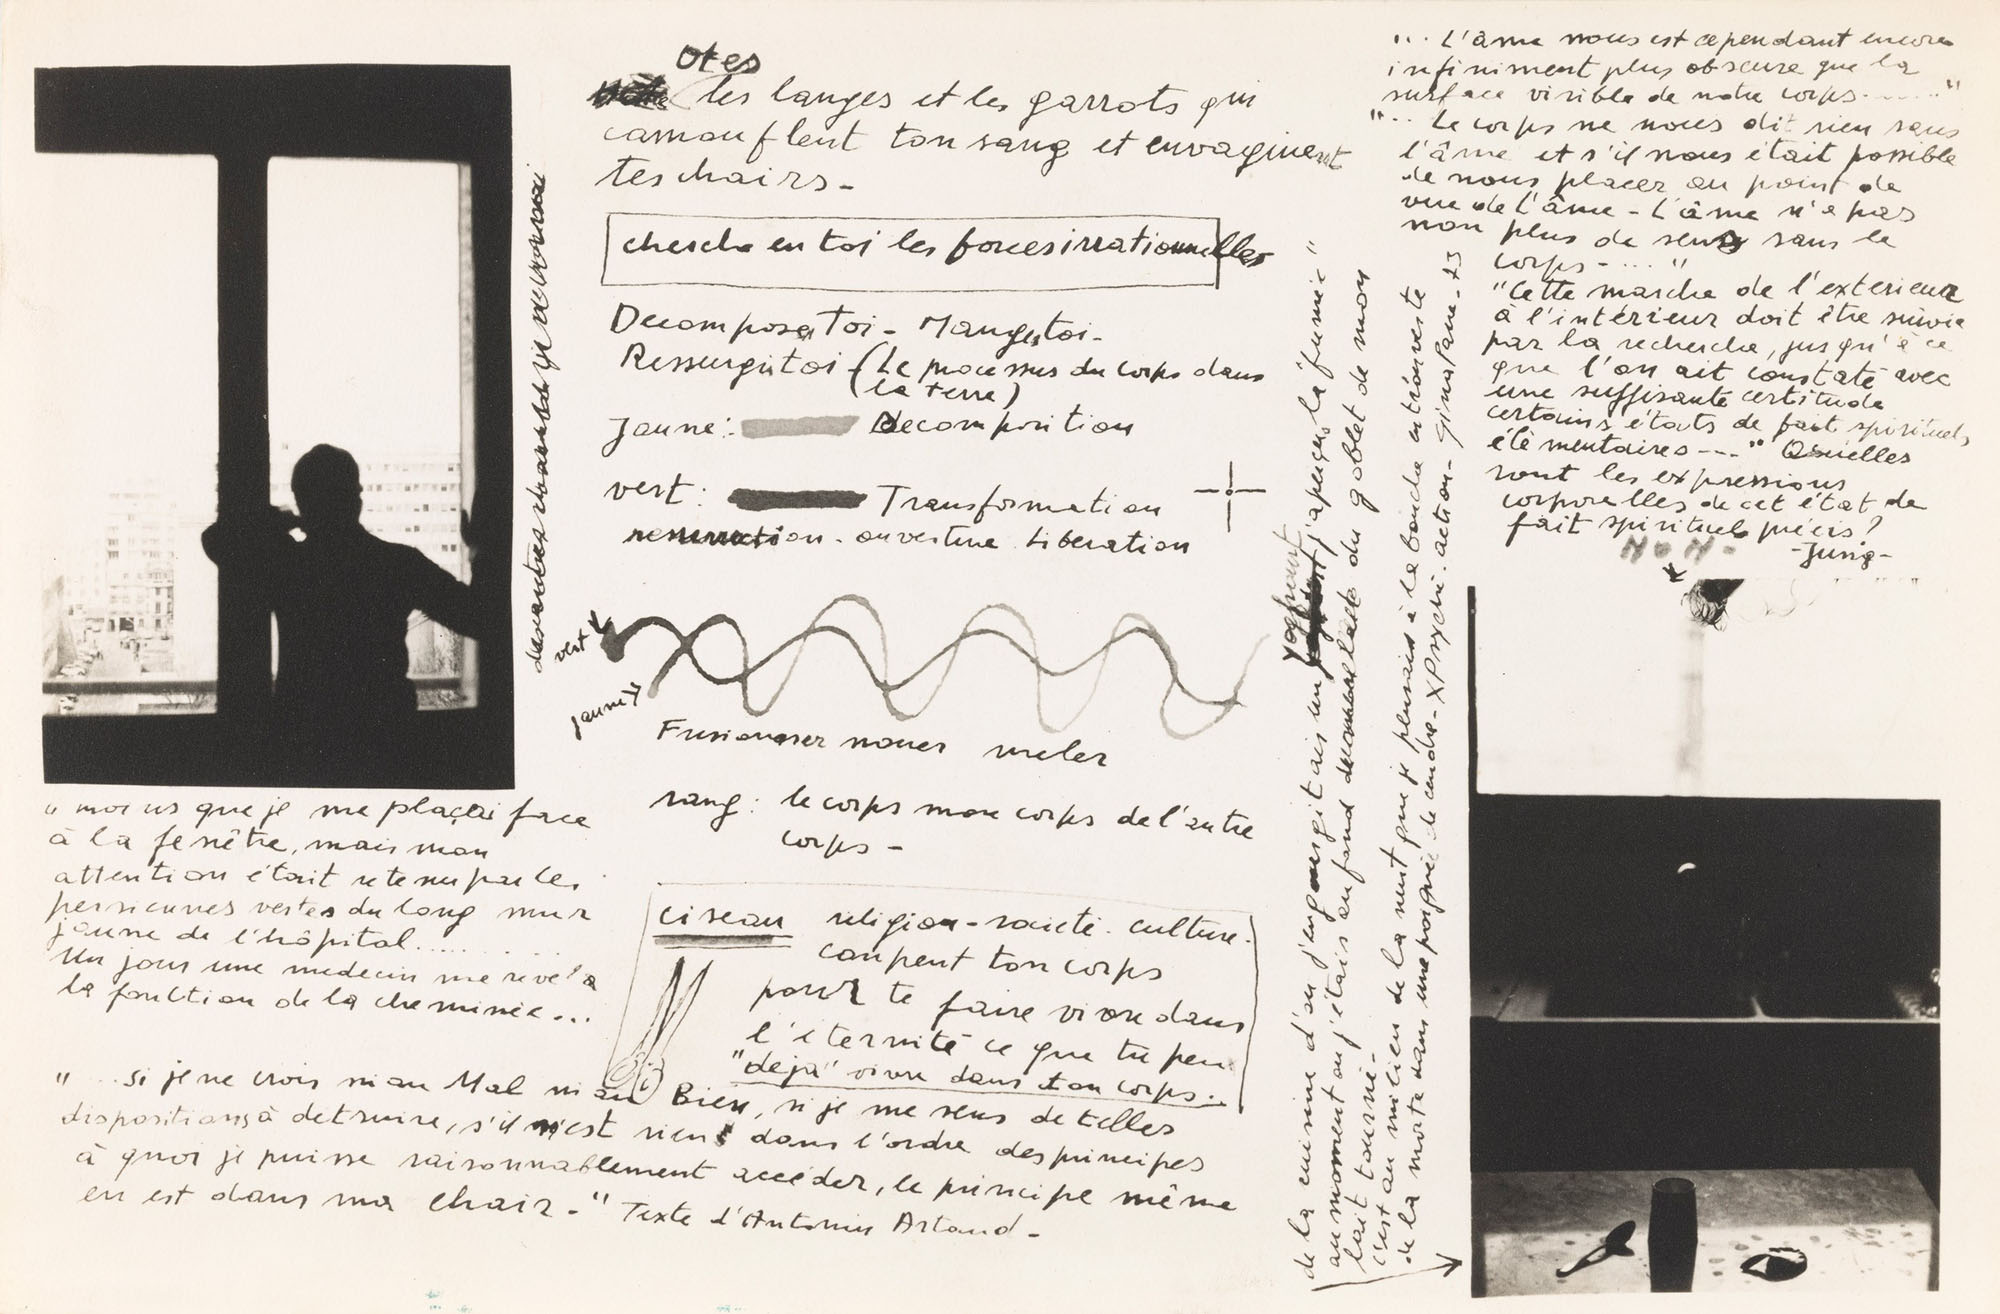 otes
les langes et les garrots qui
camouflent ton sang et envaginent
tes chairs -
cherche en toi les forces irrationnelles
Decompose Toi - Mange toi -
Ressurgis toi (Le processus du corps dans
la Terre)
Jaune : Decomposition
vert : Transformation
resurrection - ouverture Liberation
vert
jaune
Fusionner nouer meler
sang : le corps mon corps de l'autre
corps -
ciseau religion - societé - culture -
coupent ton corps
pour te faire vivre dans
l'éternité ce que tu peu
"deja" vivre dans ton corps..
" moi us que je me plaçai face
à la fenêtre, mais mon
attention était retenu par les
persiennes vertes du long mur
jaune de l'hôpital......
un jour une medecin me révéla
la fonction de la cheminée...
"... si je ne crois ni au Mal ni au Bien, si je me sens de telles
dispositions à detruire, s'il n'est rien dans l'ordre des principes
à quoi je puisse raisonnablement accéder, le principe même
en est dans ma chair - " Texte d'Antonin Artaud -
de la cuisine d'où j'engorgitais un yoghourt j'aperçus la fumée "
au moment où j'étais au fond du goblet de mon
lait tourné -
c'est au milieu de la nuit que je pensais à la bouche entrouverte
de la morte dans une poignée de cendre - XPsyché - action - Gina Pane - 73
"... L'âme nous est cependant encore
infiniment plus obscure que la
surface visible de notre corps......"
"... Le corps ne nous dit rien sans
l'âme et s'il nous était possible
de nous placer au point de
vue de l'âme - L'âme n'a pas
non plus de sens sans le
corps - ...."
"Cette marche de l'exterieur
à l'intérieur doit être suivie
par la recherche, jusqu'à ce
que l'on ait constaté avec
une suffisante certitude
certains états de fait spirituels
élémentaires ---" Quelles
sont les expressions
corporelles de cet état de
fait spirituel précis?
- Jung -